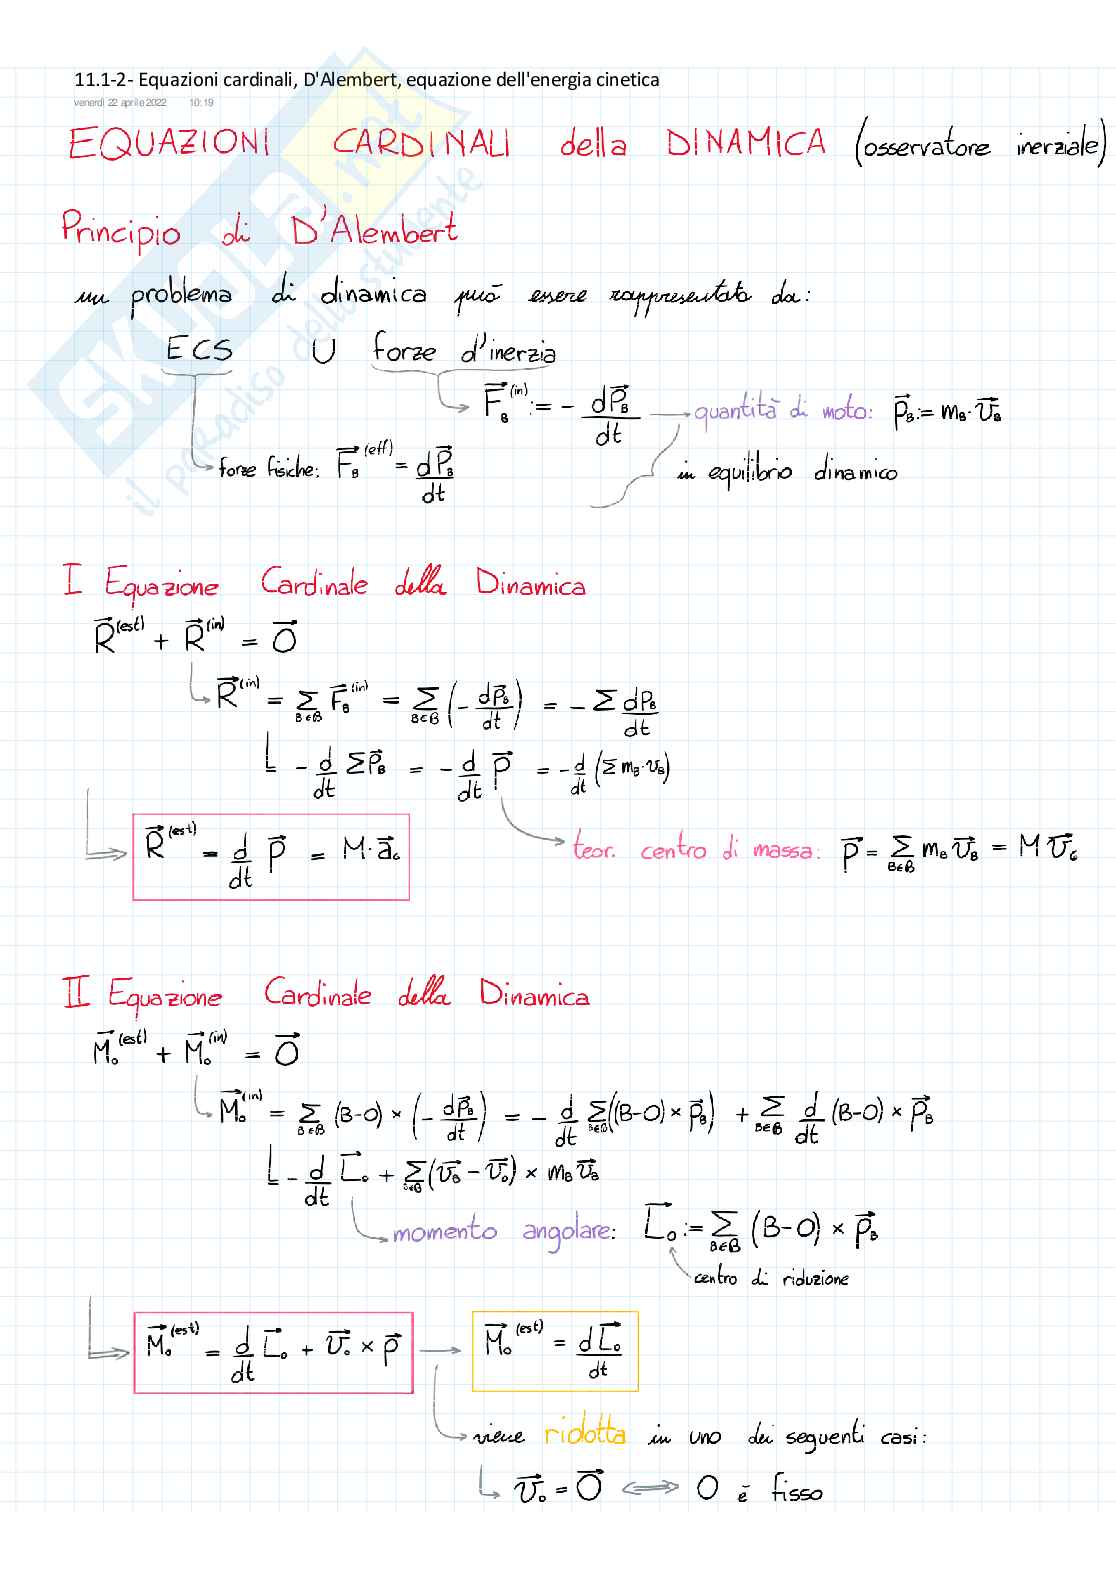 11.1-2- Equazioni cardinali, D'Alembert, equazione dell'energia cinetica
venerdì 22 aprile 2022 10:19
EQUAZIONI CARDINALI della DINAMICA (osservatore inerziale)
Principio di D'Alembert
un problema di dinamica può essere rappresentato da:
ECS U forze d'inerzia
F⃗_B^(in) := - dP⃗_B/dt → quantità di moto: p⃗_B := m_B · v⃗_B
forze fisiche: F⃗_B^(eff) = dP⃗_B/dt
in equilibrio dinamico
I Equazione Cardinale della Dinamica
R⃗^(est) + R⃗^(in) = O⃗
R⃗^(in) = Σ_{B∈B} F⃗_B^(in) = Σ_{B∈B} (- dp⃗_B/dt) = - Σ dp_B/dt
- d/dt Σp⃗_B = - d/dt p⃗ = - d/dt (Σ m_B · v_B)
R⃗^(est) = d/dt p⃗ = M · a⃗_G
teor. centro di massa: p⃗ = Σ_{B∈B} m_B v⃗_B = M v⃗_G
II Equazione Cardinale della Dinamica
M⃗_o^(est) + M⃗_o^(in) = O⃗
M⃗_o^(in) = Σ_{B∈B} (B-O) × (- dp⃗_B/dt) = - d/dt Σ_{B∈B} ((B-O) × p⃗_B) + Σ_{B∈B} d/dt (B-O) × p⃗_B
- d/dt L⃗_o + Σ_{B∈B} (v⃗_B - v⃗_o) × m_B v⃗_B
momento angolare: L⃗_o := Σ_{B∈B} (B-O) × p⃗_B
centro di riduzione
M⃗_o^(est) = d/dt L⃗_o + v⃗_o × p⃗ → M⃗_o^(est) = dL⃗_o/dt
viene ridotta in uno dei seguenti casi:
v⃗_o = O⃗ ⟺ O è fisso
SKUOLA.net
il paradiso dello studente